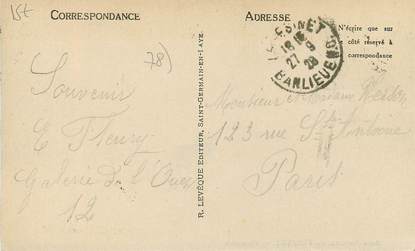 15€
CORRESPONDANCE
ADRESSE
N'écrire que sur
le côté réservé à
correspondance
78)
18
27-9
28
BANLIEUE
R. LEVÊQUE EDITEUR, SAINT-GERMAIN-EN-LAYE.
Souvenir
E Fleury
Galerie de l'Ouest
12
Monsieur et
123 rue St Antoine
Paris